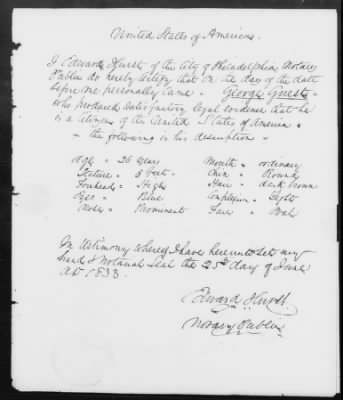 United States of America.
I Edward Hurst of the City of Philadelphia Notary
Public do hereby certify that on the day of the date
before me personally came George Guest
who produced satisfactory legal evidence that he
is a citizen of the United States of America
the following is his description
Age 26 years Mouth ordinary
Stature 5 feet Chin Round
Forehead High Hair dark brown
Eyes Blue Complexion Light
Nose Prominent Face Oval
In testimony whereof I have hereunto set my
hand & Notarial Seal the 25th day of June
AD 1833
Edward Hurst
Notary Public